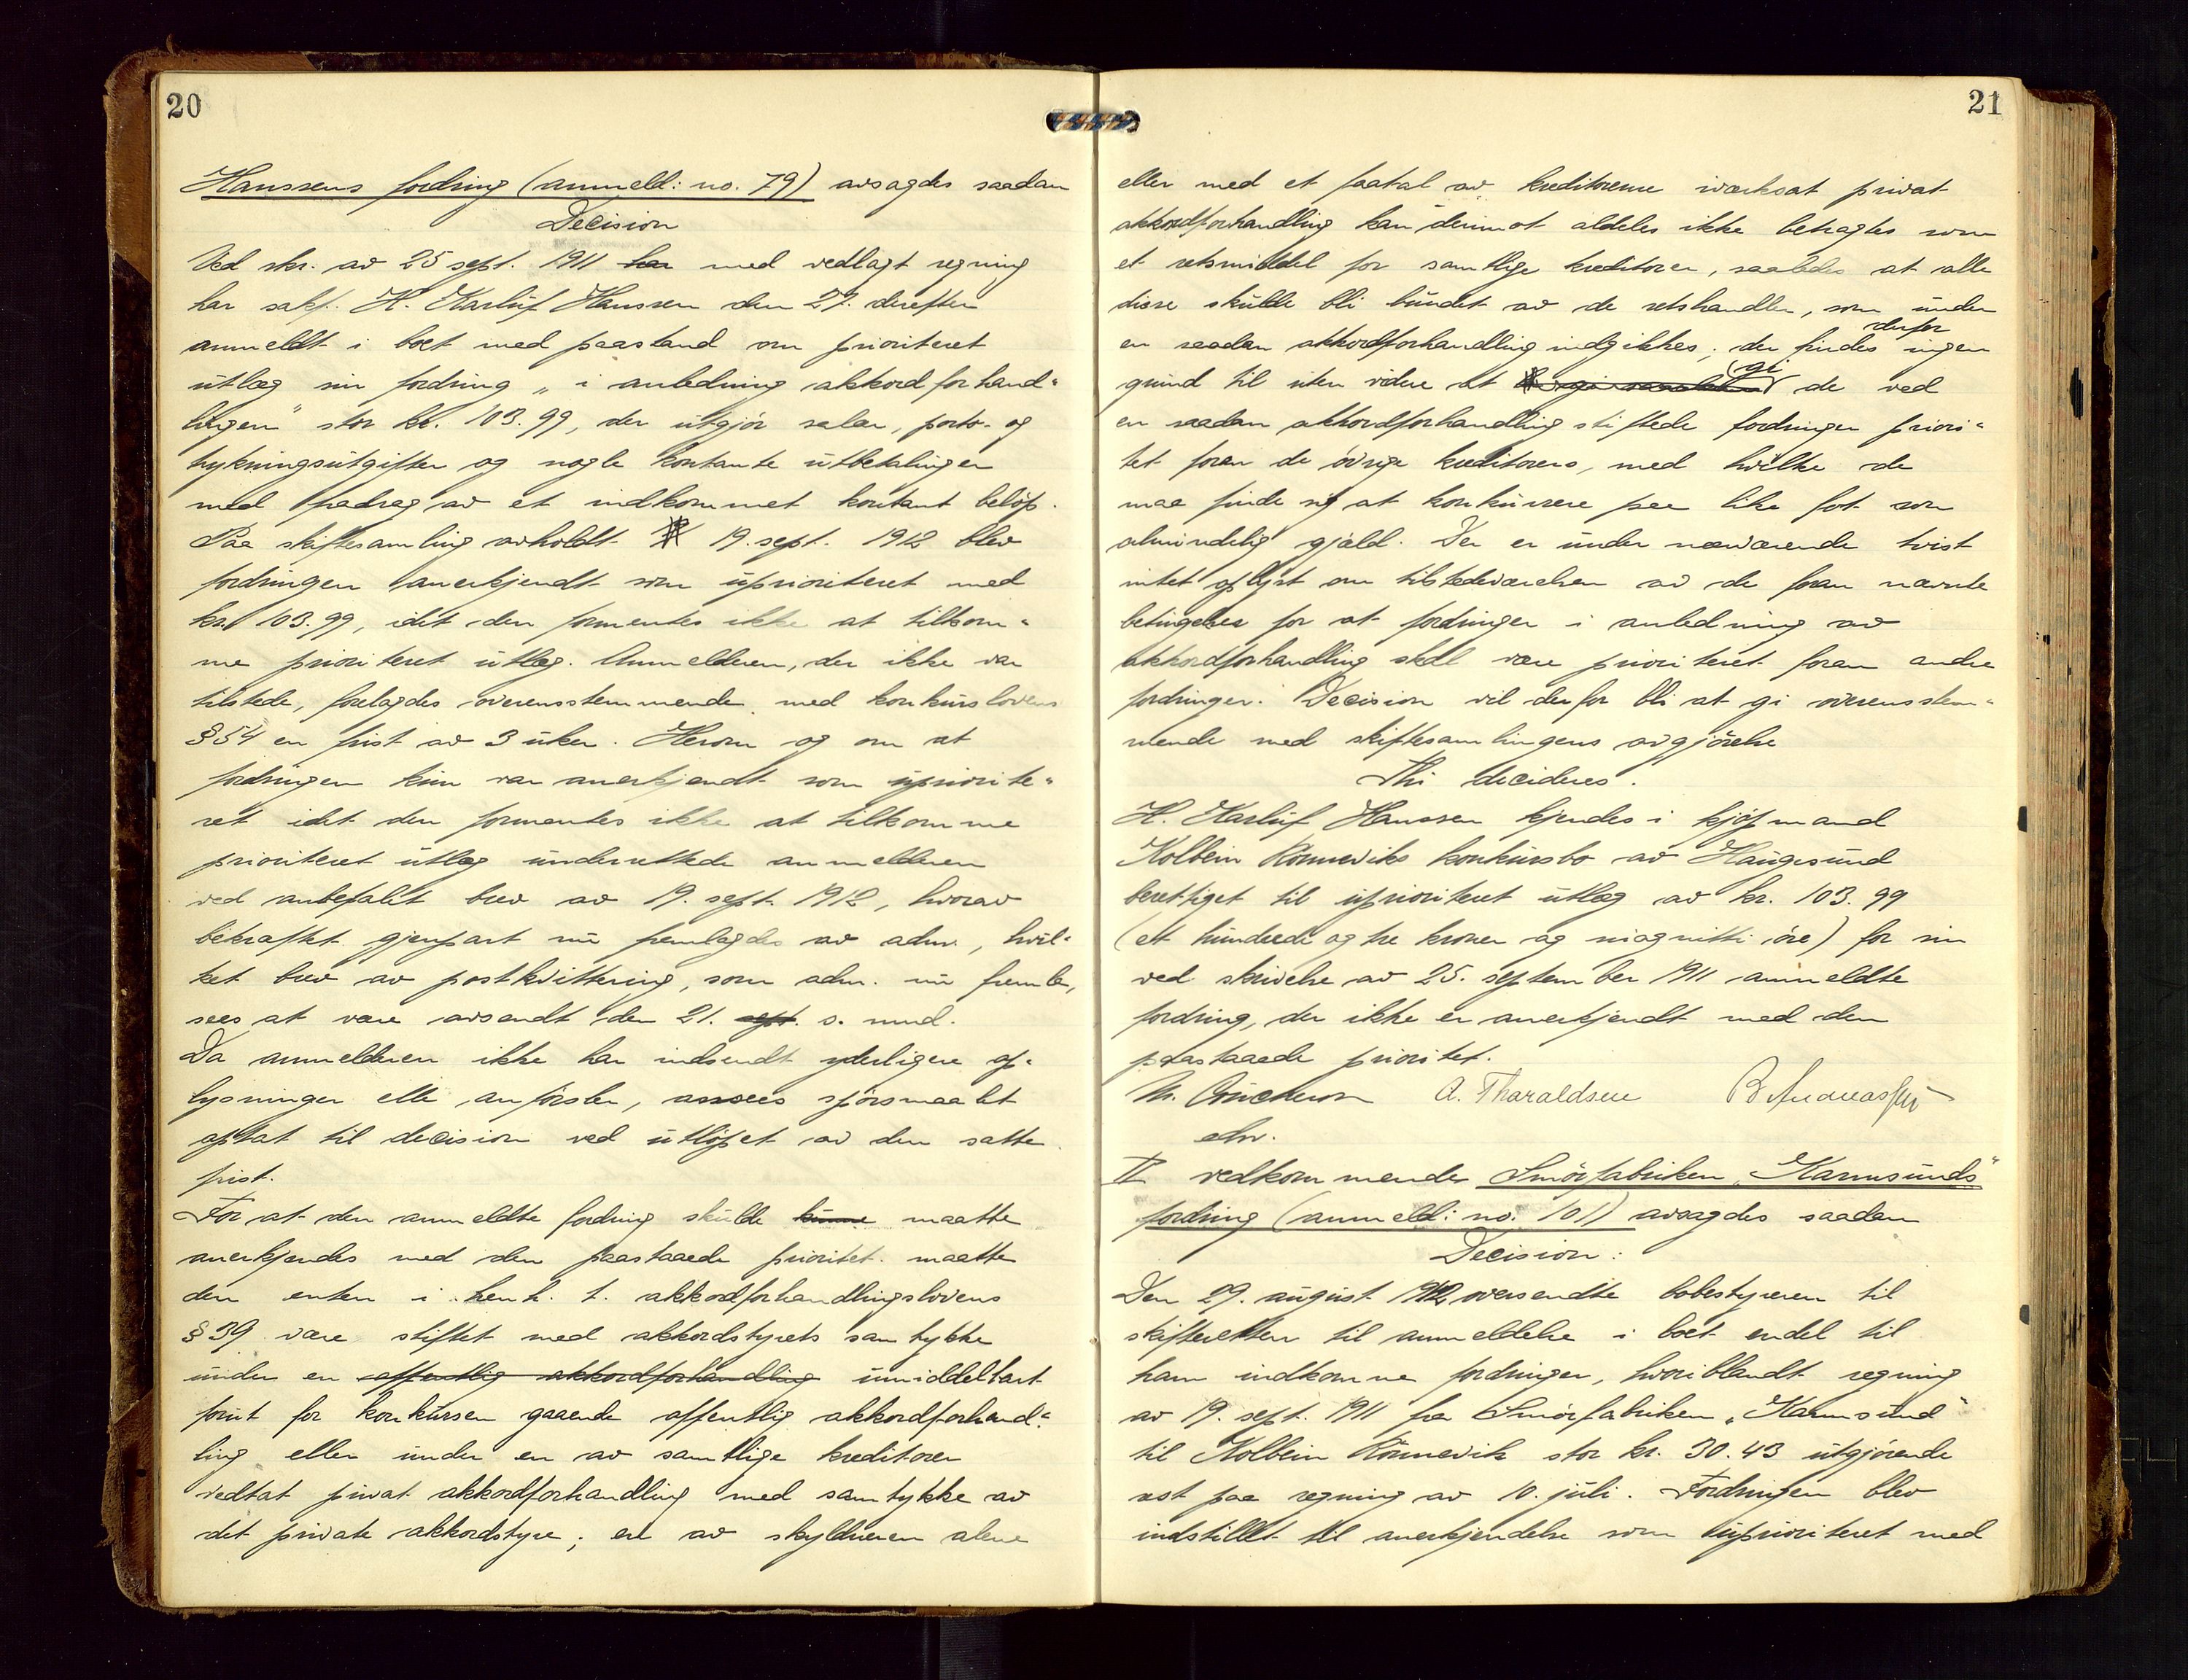 20
Hanssens fordring (anmeld: no. 79) avsagdes saadan
Decision
Ved skr. av 25 sept. 1911 har med vedlagt regning
har sakf. H. Karluf Hanssen den 27. derefter
anmeldt i boet med paastand om prioriteret
utlæg sin fordring „i anledning akkordforhand-
lingen" stor kr. 103.99, der utgjør salær, porto- og
trykningsutgifter og nogle kontante utbetalinger
med fradrag av et indkommet kontant beløp.
Paa skiftesamling avholdt 19. sept. 1912 blev
fordringen anerkjendt som uprioriteret med
kr. 103.99, idet den formentes ikke at tilkom-
me prioriteret utlæg. Anmelderen, der ikke var
tilstede, forelagdes overensstemmende med konkurslovens
§ 54 en frist av 3 uker. Herom og om at
fordringen kun var anerkjendt som upriorite-
ret idet den formentes ikke at tilkomme
prioriteret utlæg underrettede anmelderen
ved anbefalet brev av 19. sept. 1912, hvorav
bekræftet gjenpart nu fremlagdes av adm., hvil-
ket brev av postkvittering, som adm. nu fremla,
sees at være avsendt den 21. sept. s. mnd.
Da anmelderen ikke har indsendt yderligere op-
lysninger elle anførsler, ansees spørsmaalet
optat til decision ved utløpet av den satte
frist.
For at den anmeldte fordring skulde kunne maatte
anerkjendes med den paastaaede prioritet maatte
den enten i henh. t. akkordforhandlingslovens
§ 39 være stiftet med akkordstyrets samtykke
under en offentlig akkordforhandling umiddelbart
forut for konkursen gaaende offentlig akkordforhand-
ling eller under en av samtlige kreditorer
vedtat privat akkordforhandling med samtykke av
det private akkordstyre; en av skyldneren alene
21
eller med et faatal av kreditorerne iverksat privat
akkordforhandling kan derimot aldeles ikke betragtes som
et retsmiddel for samtlige kreditorer, saaledes at alle
disse skulde bli bundet av de retshandler, som under
en saadan akkordforhandling indgikkes; der findes derfor ingen
grund til uten videre at gi de ved
en saadan akkordforhandling stiftede fordringer priori-
tet foran de øvrige kreditorers, med hvilke de
maa finde sig at konkurrere paa like fot som
almindelig gjæld. Der er under nærværende tvist
intet oplyst om tilstedeværelsen av de foran nævnte
betingelser for at fordringer i anledning av
akkordforhandling skal være prioriteret foran andre
fordringer. Decision vil derfor bli at gi overensstem-
mende med skiftesamlingens avgjørelse
Thi decideres.
H. Karluf Hanssen kjendes i kjøpmand
Kolbein Rönneviks konkursbo av Haugesund
berettiget til uprioriteret utlæg av kr. 103.99
(et hundrede og tre kroner og niognitti øre) for sin
ved skrivelse av 25. september 1911 anmeldte
fordring, der ikke er anerkjendt med den
paastaaede prioritet.
A. Tharaldsen B. Andreassen
II vedkommende Smörfabriken „Karmsunds"
fordring (anmeld: no. 101) avsagdes saadan
Decision:
Den 29. august 1912 oversendte bobestyreren til
skifteretten til anmeldelse i boet endel til
ham indkomne fordringer, hvoriblandt regning
av 19. sept. 1911 fra Smörfabriken „Karmsund"
til Kolbein Rönnevik stor kr. 30.43 utgjørende
rest paa regning av 10. juli. Fordringen blev
indstillet til anerkjendelse som uprioriteret med